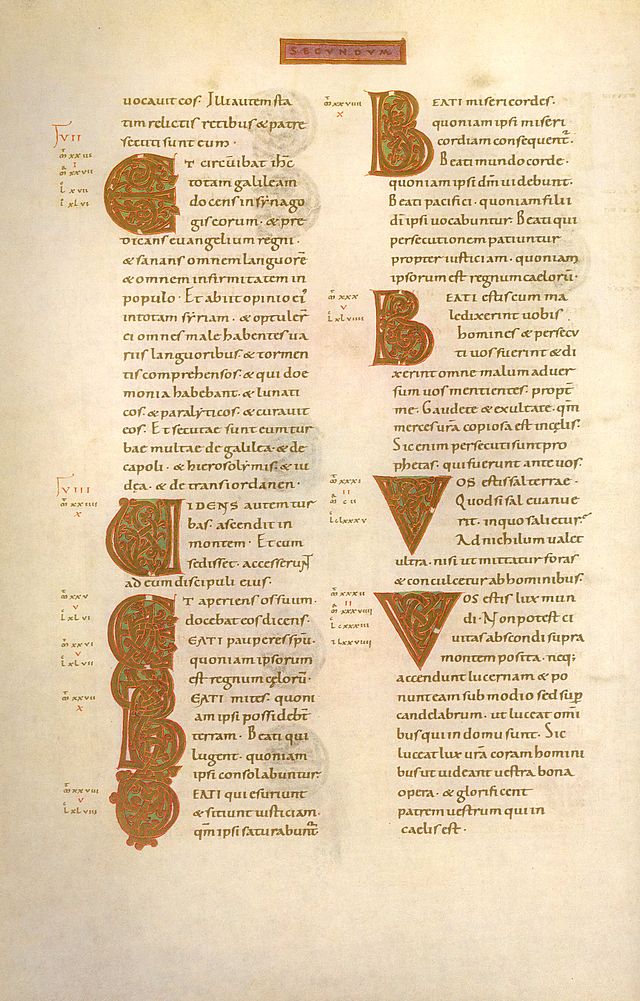 SECUNDUM
uocauit eos. Illi autem sta
tim relictis retibus & patre
secuti sunt eum.
ET circuibat ihc̄
totam galileam
docens in synago
gis eorum. & pre
dicans euangelium regni.
& sanans omnem languorē
& omnem infirmitatem in
populo. Et abiit opinio ei'
in totam syriam. & optuler̄
ei omnes male habentes ua
riis languoribus & tormen
tis comprehensos. & qui doe
monia habebant. & lunati
cos. & paralyticos. & curauit
eos. Et secutae sunt eum tur
bae multae de galilea. & de
capoli. & hierosolymis. & iu
dęa. & de trans iordanen.
VIDENS autem tur
bas. ascendit in
montem. Et cum
sedisset. accesserunt
ad eum discipuli eius.
ET aperiens os suum.
docebat eos dicens.
BEATI pauperes spū.
quoniam ipsorum
est regnum cęlorū.
BEATI mites. quoni
am ipsi possidebt̄
terram. Beati qui
lugent. quoniam
ipsi consolabuntur.
BEATI qui esuriunt
& sitiunt iusticiam.
qm̄ ipsi saturabunt̄
BEATI misericordes.
quoniam ipsi miseri
cordiam consequent̄.
Beati mundo corde.
quoniam ipsi dm̄ uidebunt.
Beati pacifici. quoniam filii
dī ipsi uocabuntur. Beati qui
persecutionem patiuntur
propter iusticiam. quoniam
ipsorum est regnum caelorū.
BEATI estis cum ma
ledixerint uobis
homines & persecu
ti uos fuerint & di
xerint omne malum aduer
sum uos mentientes. propt̄
me. Gaudete & exultate. qm̄
merces ura copiosa est in cęlis.
Sic enim persecuti sunt pro
phetas. qui fuerunt ante uos.
VOS estis sal terrae.
Quod si sal euanue
rit. in quo salietur?
Ad nichilum ualet
ultra. nisi ut mittatur foras
& conculcetur ab hominibus.
VOS estis lux mun
di. Non potest ci
uitas abscondi supra
montem posita. neq;
accendunt lucernam & po
nunt eam sub modio sed sup̄
candelabrum. ut luceat omī
bus qui in domu sunt. Sic
luceat lux urā coram homini
bus ut uideant uestra bona
opera. & glorificent
patrem uestrum qui in
caelis est.